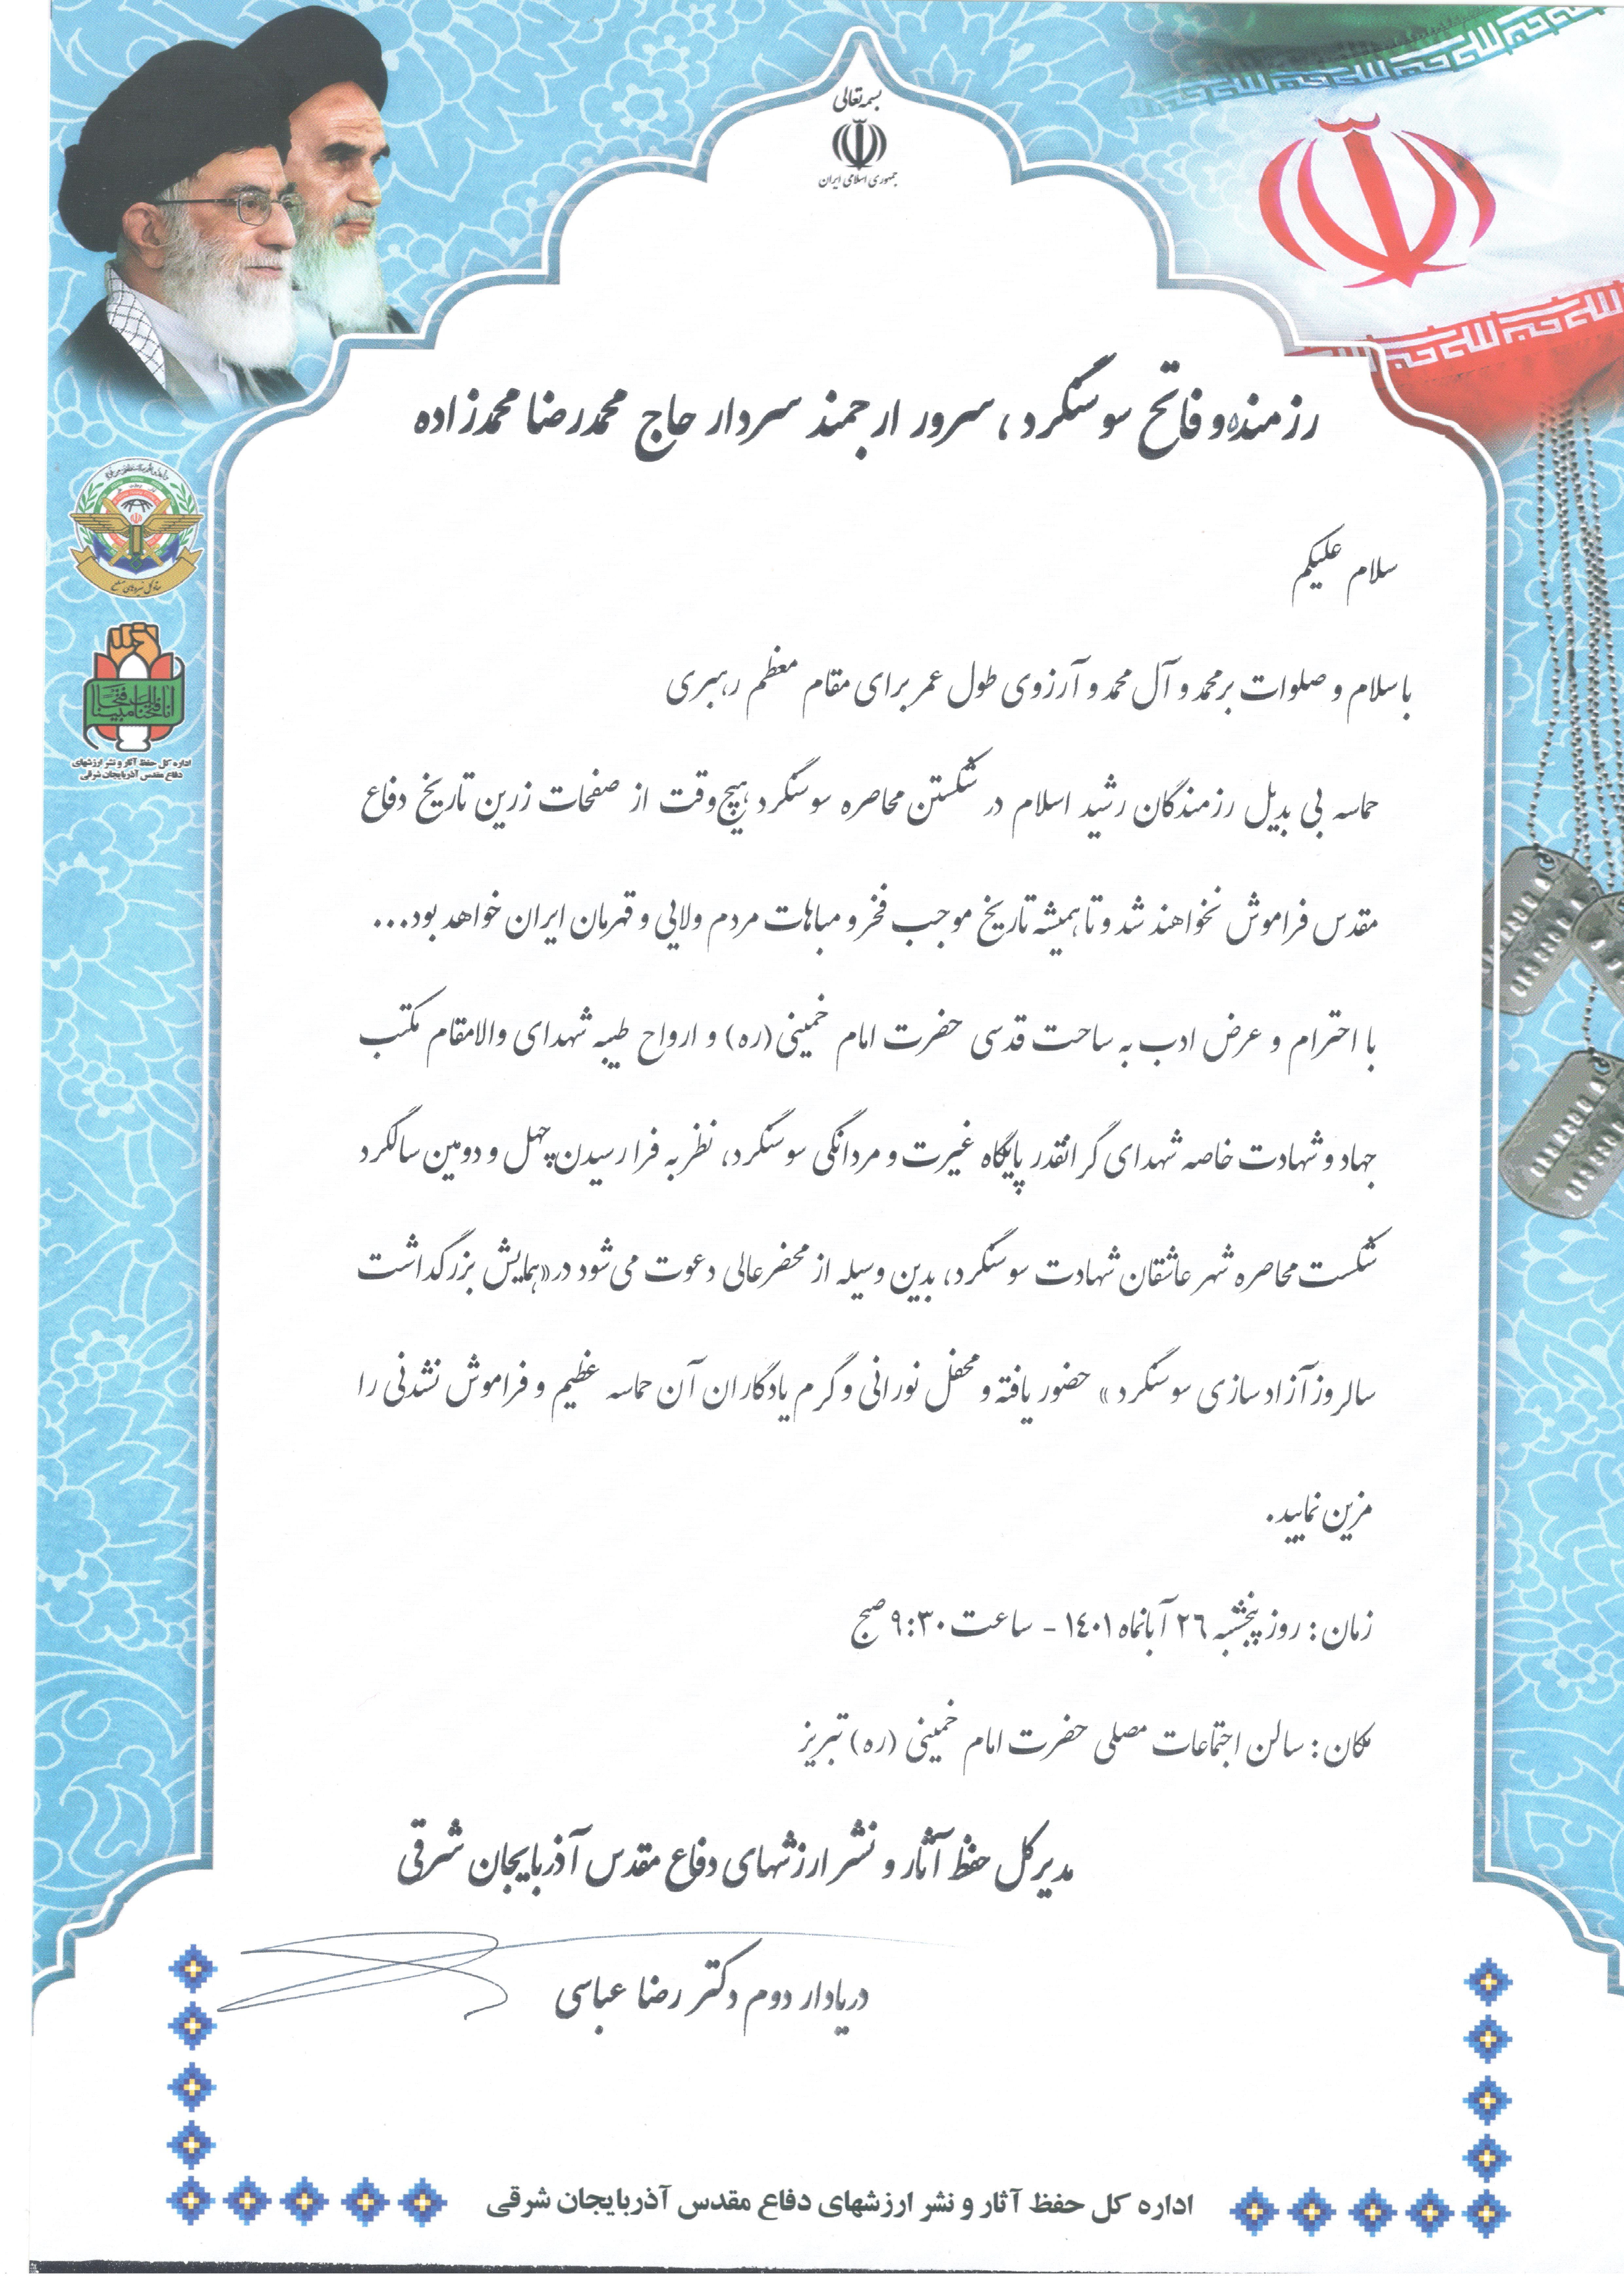 بسمه تعالی
جمهوری اسلامی ایران
رزمنده و فاتح سوسنگرد ، سرور ارجمند سردار حاج محمدرضا محمدزاده
سلام علیکم
با سلام و صلوات بر محمد و آل محمد و آرزوی طول عمر برای مقام معظم رهبری
حماسه بی بدیل رزمندگان رشید اسلام در شکستن محاصره سوسنگرد هیچ‌وقت از صفحات زرین تاریخ دفاع
مقدس فراموش نخواهند شد و تا همیشه تاریخ موجب فخر و مباهات مردم ولایی و قهرمان ایران خواهد بود...
با احترام و عرض ادب به ساحت قدسی حضرت امام خمینی (ره) و ارواح طیبه شهدای والامقام مکتب
جهاد و شهادت خاصه شهدای گرانقدر پایگاه غیرت و مردانگی سوسنگرد، نظر به فرا رسیدن چهل و دومین سالگرد
شکست محاصره شهر عاشقان شهادت سوسنگرد، بدین وسیله از محضرعالی دعوت می‌شود در «همایش بزرگداشت
سالروز آزادسازی سوسنگرد » حضور یافته و محفل نورانی و گرم یادگاران آن حماسه عظیم و فراموش نشدنی را
مزین نمایید.
زمان : روز پنجشنبه ۲۶ آبانماه ۱۴۰۱ - ساعت ۹:۳۰ صبح
مکان : سالن اجتماعات مصلی حضرت امام خمینی (ره) تبریز
مدیرکل حفظ آثار و نشر ارزشهای دفاع مقدس آذربایجان شرقی
دریادار دوم دکتر رضا عباسی
اداره کل حفظ آثار و نشر ارزشهای دفاع مقدس آذربایجان شرقی
ستاد کل نیروهای مسلح
انا فتحنا لک فتحا مبینا
اداره کل حفظ آثار و نشر ارزشهای
دفاع مقدس آذربایجان شرقی